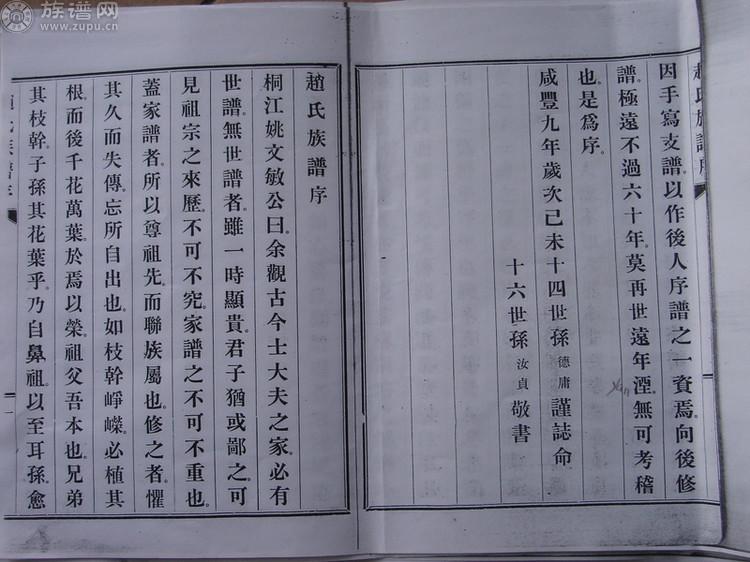 族谱网
www.zupu.cn
趙氏族譜序
因手寫支譜。以作後人序譜之一資焉。向後修
譜。極遠不過六十年。莫再世遠年湮。無可考稽
也。是爲序。
咸豐九年歲次己未十四世孫德庸謹誌命
十六世孫汝貞敬書
趙氏族譜序
桐江姚文敏公曰。余觀古今士大夫之家。必有
世譜。無世譜者。雖一時顯貴。君子猶或鄙之。可
見祖宗之來歷。不可不究。家譜之不可不重也。
蓋家譜者。所以尊祖先而聯族屬也。修之者。懼
其久而失傳。忘所自出也。如枝幹崢嶸。必植其
根。而後千花萬葉。於焉以榮。祖父吾本也。兄弟
其枝幹。子孫其花葉乎。乃自鼻祖。以至耳孫。愈
一